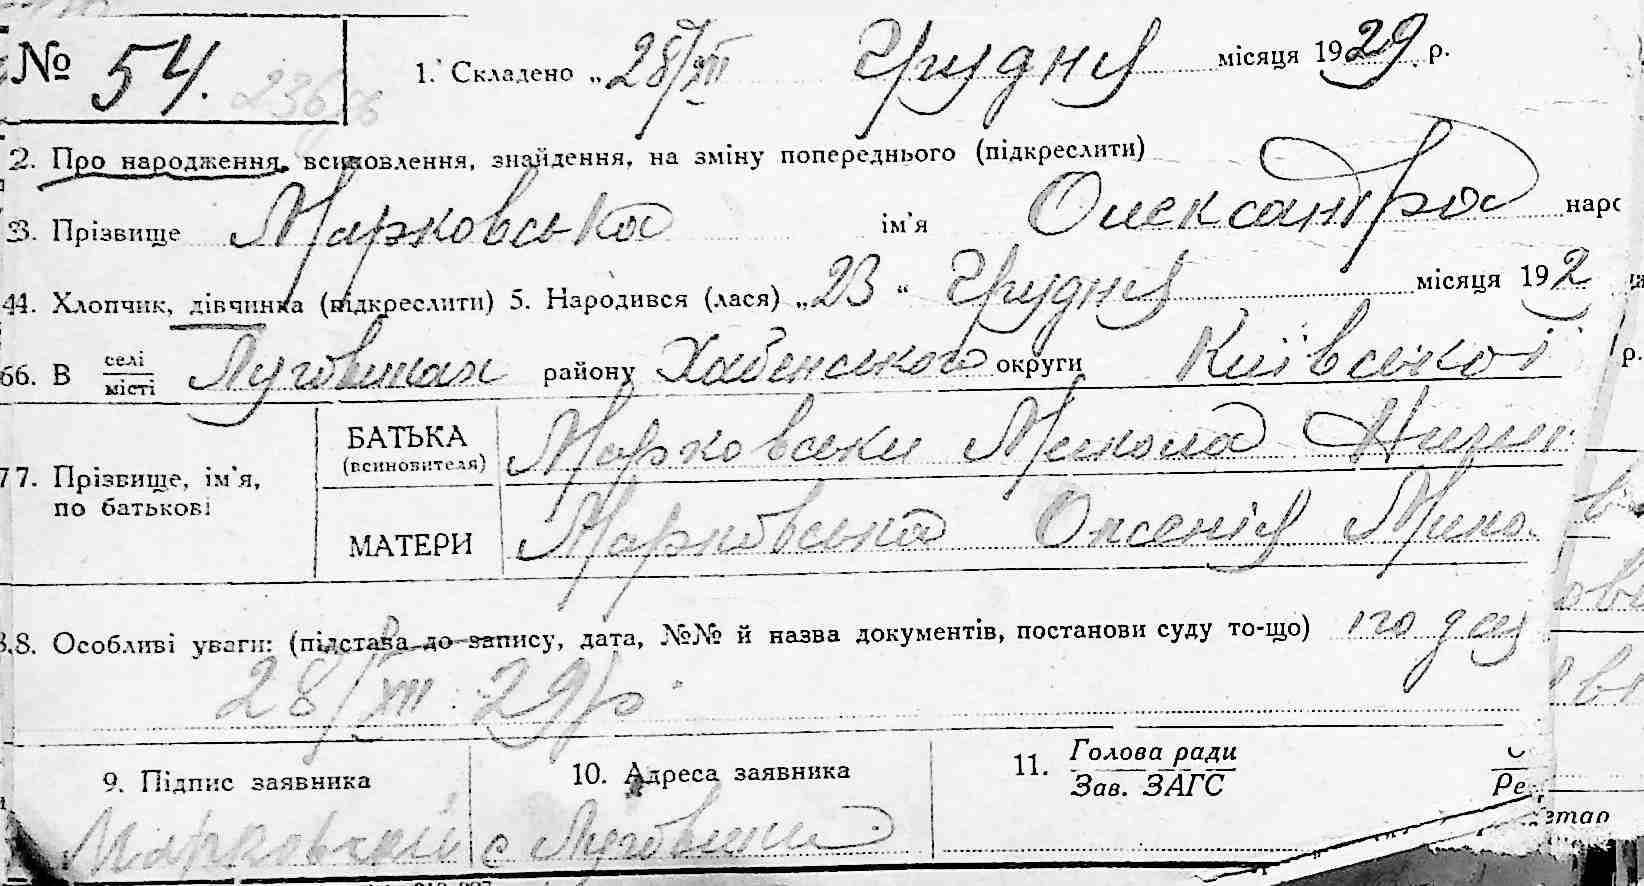 № 54. 1. Складено „28/XII Грудня місяця 1929 р.
2. Про народження, всиновлення, знайдення, на зміну попереднього (підкреслити)
3. Прізвище Марковська ім'я Олександра
4. Хлопчик, дівчинка (підкреслити) 5. Народився (лася) „23“ Грудня місяця 192
6. В селі/місті Луговиках району Хабенського округи Київської р.
7. Прізвище, ім'я, по батькові
БАТЬКА (всиновителя) Марковськи Микола
МАТЕРИ Марковська Оксенія Мико
8. Особливі уваги: (підстава до запису, дата, №№ й назва документів, постанови суду то-що)
28/XII 29 р.
9. Підпис заявника 10. Адреса заявника 11. Голова ради
Зав. ЗАГС
Марковский с Луговики